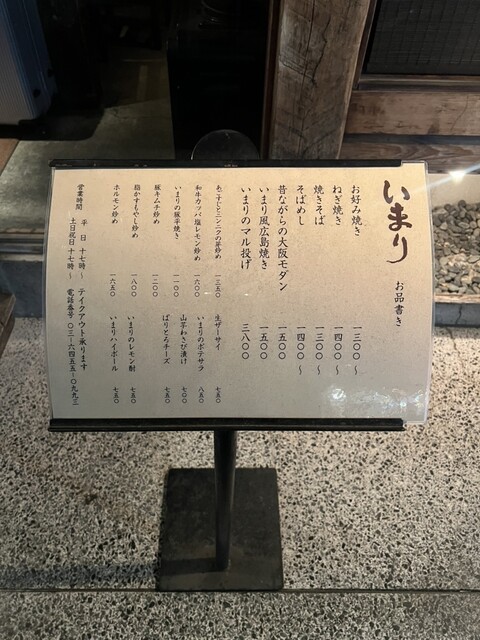 いまり
お品書き
お好み焼き 一三〇〇〜
ねぎ焼き 一四〇〇〜
焼きそば 一三〇〇〜
そばめし 一四〇〇〜
昔ながらの大阪モダン 一五〇〇
いまり風広島焼き 一五〇〇
いまりのマル投げ 三八〇〇
あごすじとニンニクの芽炒め 一三五〇
和牛カッパ塩レモン炒め 一六〇〇
いまりの豚平焼き 一一〇〇
豚キムチ炒め 一二〇〇
脂かすもやし炒め 一八〇〇
ホルモン炒め 一六五〇
生ザーサイ 七五〇
いまりのポテサラ 八五〇
山芋わさび漬け 七〇〇
ぱりとろチーズ 七五〇
いまりのレモン酎 七五〇
いまりハイボール 七五〇
営業時間 平日 十七時〜
土日祝日 十七時〜
テイクアウト承ります
電話番号 〇三-六四五五-〇九九三